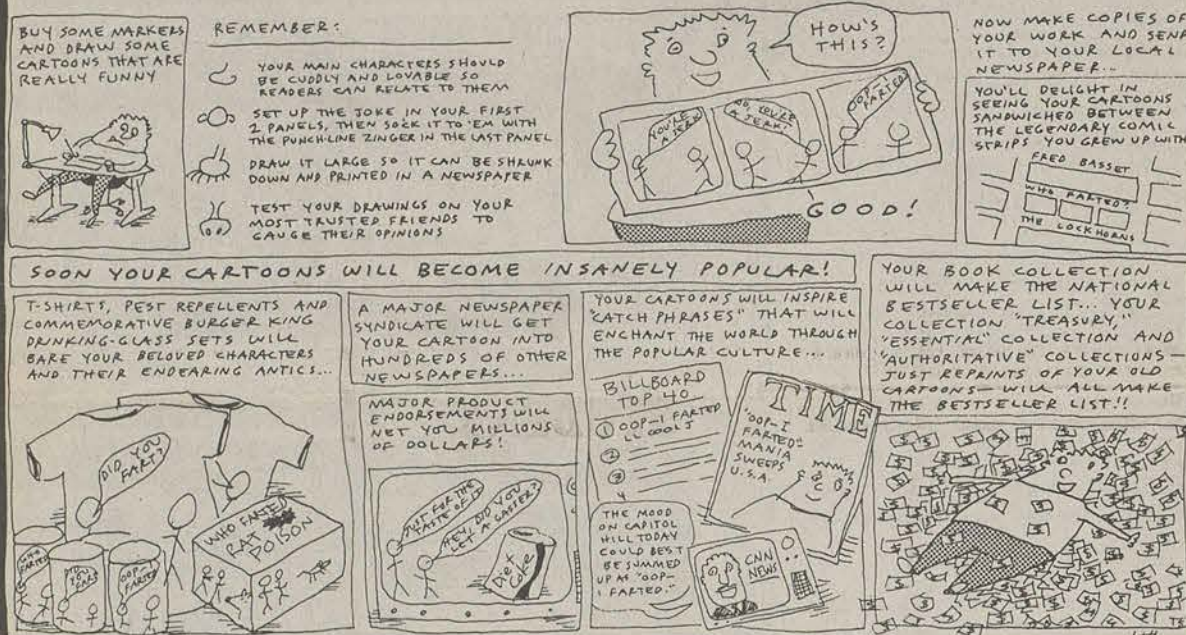 BUY SOME MARKERS
AND DRAW SOME
CARTOONS THAT ARE
REALLY FUNNY
REMEMBER:
YOUR MAIN CHARACTERS SHOULD
BE CUDDLY AND LOVABLE SO
READERS CAN RELATE TO THEM
SET UP THE JOKE IN YOUR FIRST
2 PANELS, THEN SOCK IT TO 'EM WITH
THE PUNCH-LINE ZINGER IN THE LAST PANEL
DRAW IT LARGE SO IT CAN BE SHRUNK
DOWN AND PRINTED IN A NEWSPAPER
TEST YOUR DRAWINGS ON YOUR
MOST TRUSTED FRIENDS TO
GAUGE THEIR OPINIONS
HOW'S
THIS?
YOU'RE
A JERK
NO, YOU'RE
A JERK!
OOP-I
FARTED
GOOD!
NOW MAKE COPIES OF
YOUR WORK AND SEND
IT TO YOUR LOCAL
NEWSPAPER...
YOU'LL DELIGHT IN
SEEING YOUR CARTOONS
SANDWICHED BETWEEN
THE LEGENDARY COMIC
STRIPS YOU GREW UP WITH
FRED BASSET
WHO FARTED?
THE LOCKHORNS
SOON YOUR CARTOONS WILL BECOME INSANELY POPULAR!
T-SHIRTS, PEST REPELLENTS AND
COMMEMORATIVE BURGER KING
DRINKING-GLASS SETS WILL
BARE YOUR BELOVED CHARACTERS
AND THEIR ENDEARING ANTICS...
DID YOU
FART?
WHO FARTED
RAT
POISON
OOP-I
FARTED
A MAJOR NEWSPAPER
SYNDICATE WILL GET
YOUR CARTOON INTO
HUNDREDS OF OTHER
NEWSPAPERS...
MAJOR PRODUCT
ENDORSEMENTS WILL
NET YOU MILLIONS
OF DOLLARS!
JUST FOR THE
TASTE OF IT
HEY, DID YOU
LET A GASSER?
Diet
Coke
YOUR CARTOONS WILL INSPIRE
"CATCH PHRASES" THAT WILL
ENCHANT THE WORLD THROUGH
THE POPULAR CULTURE...
BILLBOARD
TOP 40
1 OOP-I FARTED
LL COOL J
2
3
4
TIME
"OOP-I
FARTED"
MANIA
SWEEPS
U.S.A.
THE MOOD
ON CAPITOL
HILL TODAY
COULD BEST
BE SUMMED
UP AS "OOP-
I FARTED."
CNN
NEWS
YOUR BOOK COLLECTION
WILL MAKE THE NATIONAL
BESTSELLER LIST... YOUR
COLLECTION "TREASURY,"
"ESSENTIAL" COLLECTION AND
"AUTHORITATIVE" COLLECTIONS—
JUST REPRINTS OF YOUR OLD
CARTOONS—WILL ALL MAKE
THE BESTSELLER LIST!!